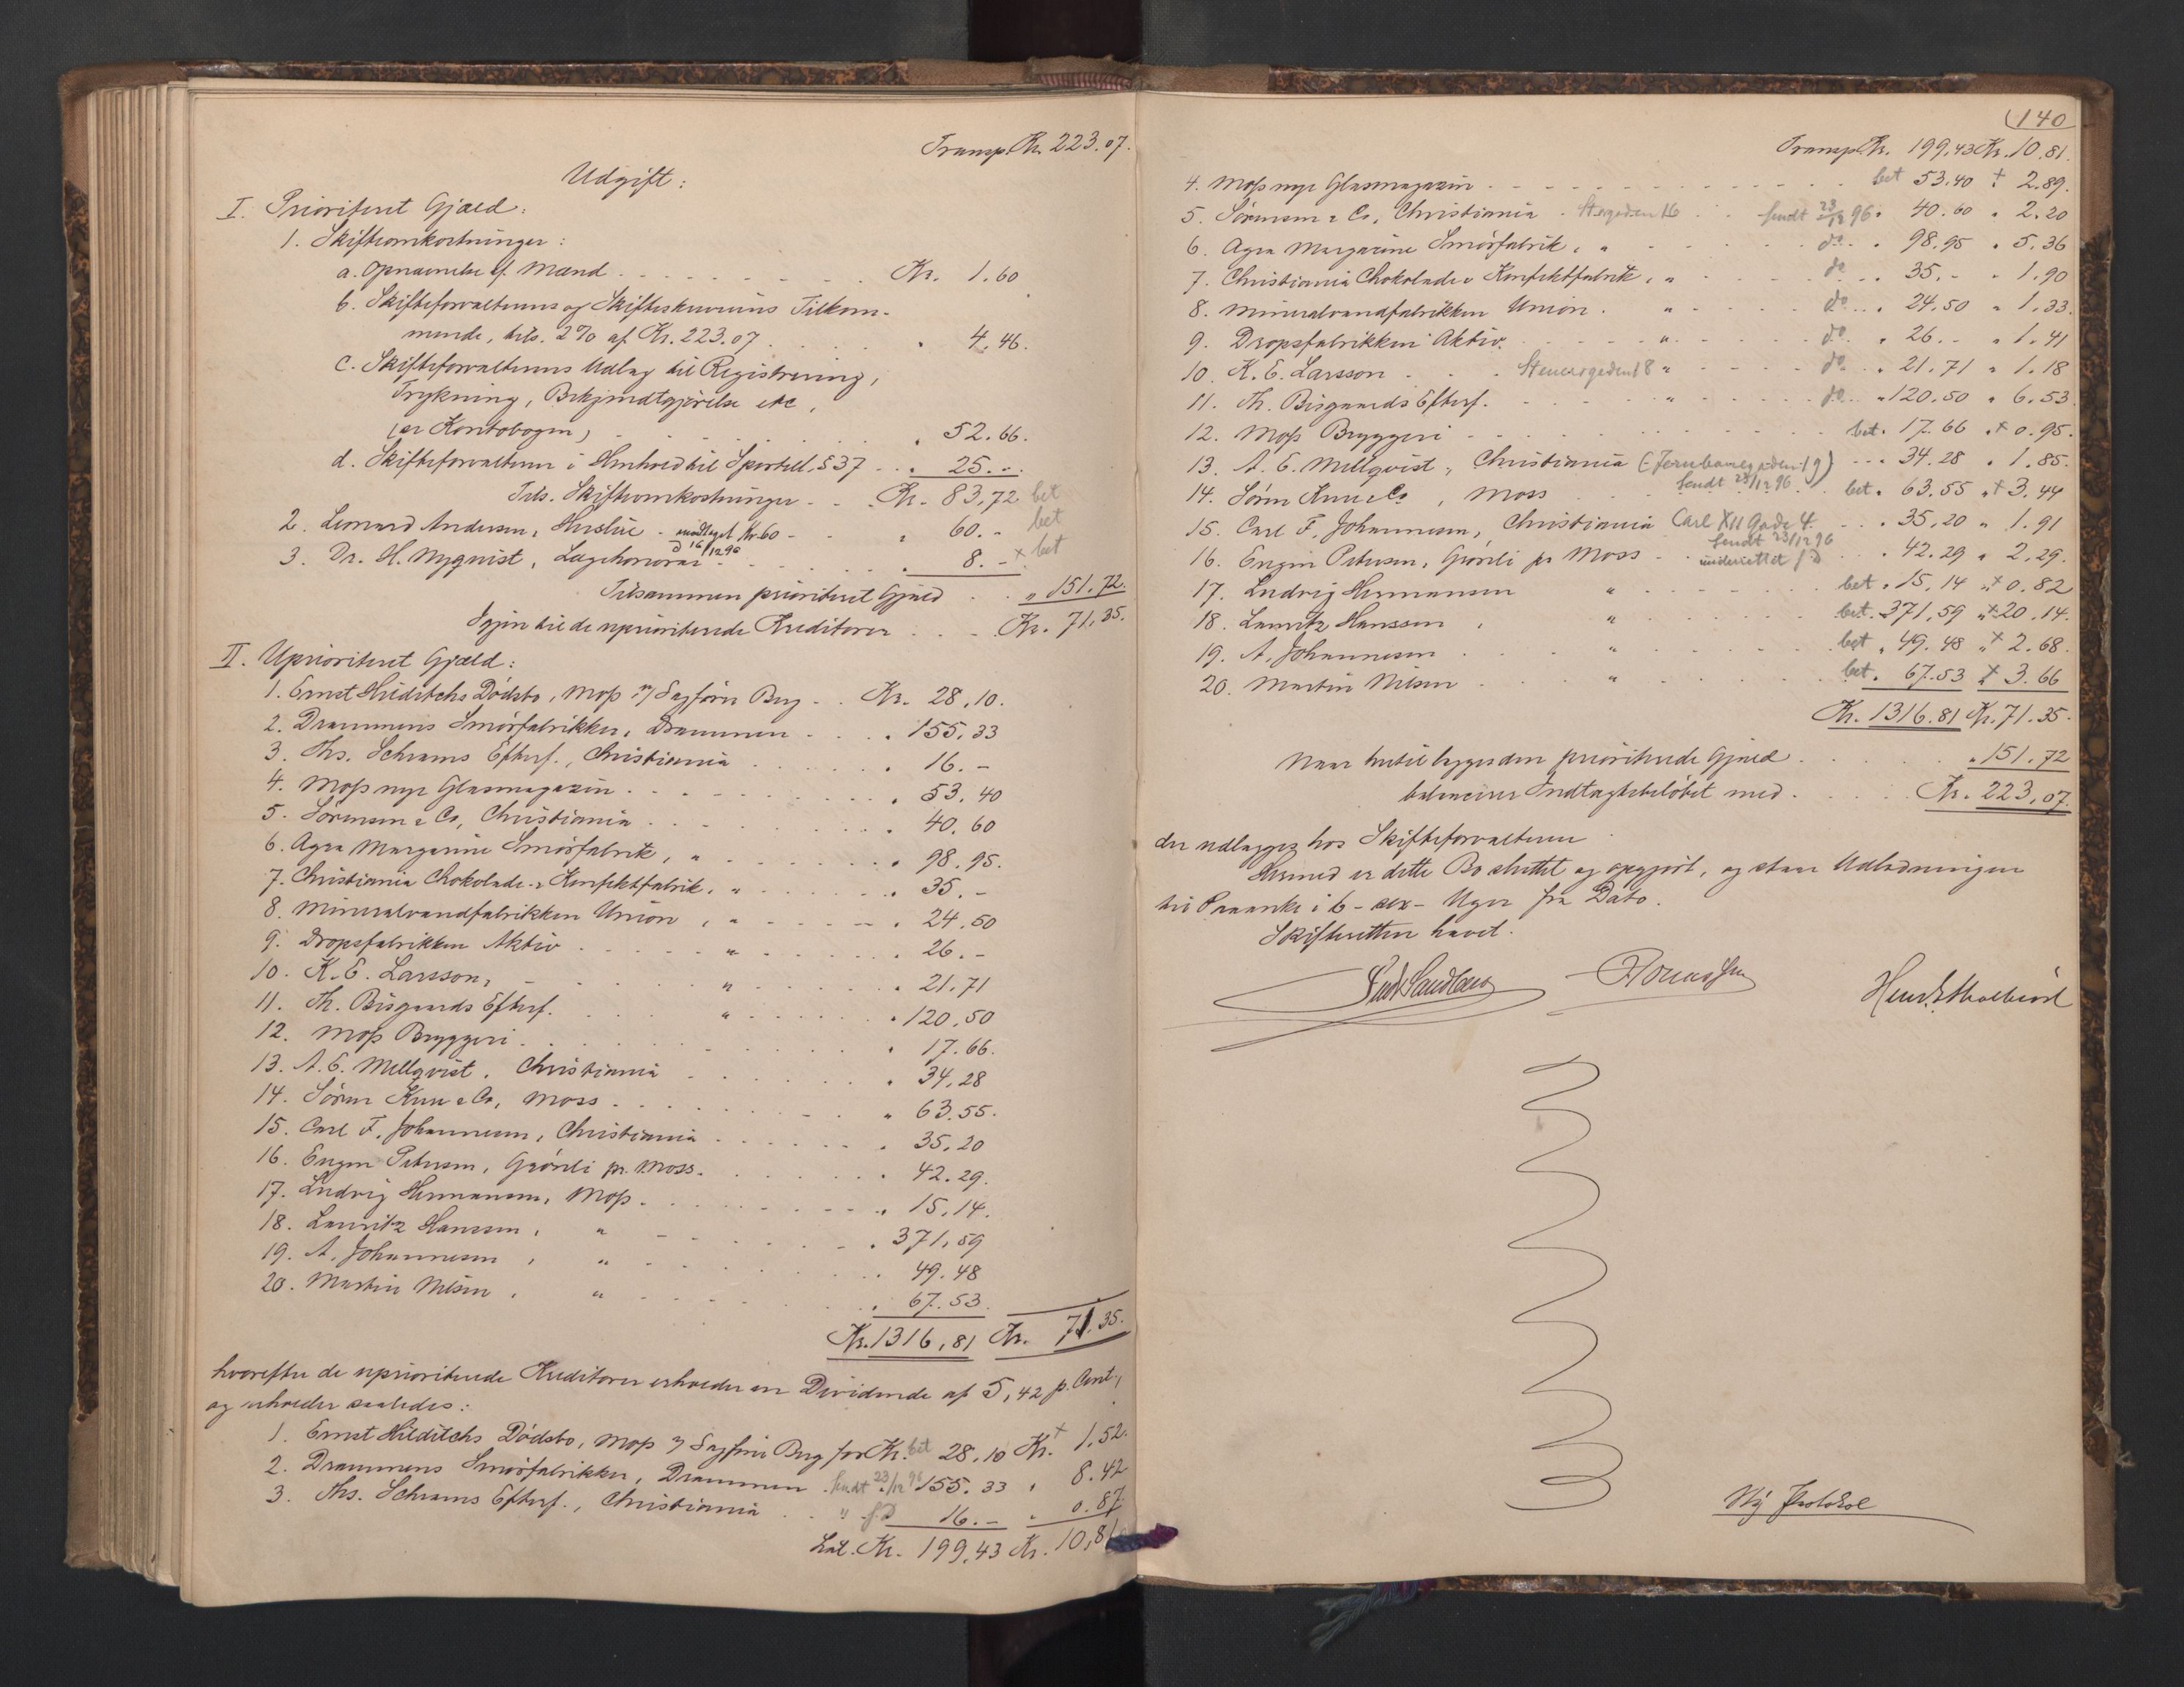 Transp. Kr. 223.07.
Udgift:
I. Prioriteret Gjæld:
1. Skifteomkostninger:
a. Opnævnelse af Mænd . . . Kr. 1.60
b. Skifteforvalterens og Skifteskriverens Tilkom-
mende, tils. 2% af Kr. 223.07 . . . " 4.46.
c. Skifteforvalterens Udlæg til Registrering,
Trykning, Bekjendtgjørelse etc.,
(se Kontobogen) . . . " 52.66.
d. Skifteforvalteren i Henhold til Sportell. § 37 . . " 25.-.
Tils. Skifteomkostninger . . Kr. 83,72 bet
2. Leonard Andersen, Husleie - modtaget Kr. 60 - " 60.- bet
d 16/12 96
3. Dr. H. Nyquist, Lægehonorar . . . " 8.- + bet
Tilsammen prioriteret Gjæld . . " 151.72.
Igjen til de uprioriterede Kreditorer . . . Kr. 71,35.
II. Uprioriteret Gjæld:
1. Ernst Hilditchs Dødsbo, Moss v/ Sagfører Berg . . Kr. 28,10.
2. Drammens Smørfabrikker, Drammen . . . " 155,33
3. Ths. Schrams Efterf., Christiania . . . " 16.-
4. Moss nye Glasmagazin . . . " 53.40
5. Sörensen & Co, Christiania . . . " 40.60
6. Agra Margarine Smörfabrik, " . . . " 98.95.
7. Christiania Chokolade- & Konfektfabrik, " . . . " 35.-
8. Mineralvandfabrikken Union, " . . . " 24.50
9. Dropsfabrikken Aktiv . . . " . . . " 26.-
10. K. E. Larsson, - . . " . . . " 21.71
11. Th. Bisgaards Efterf. . . . " . . . " 120.50
12. Moss Bryggeri . . . " 17.66.
13. A. E. Mellqvist. Christiania . . . " 34,28
14. Sören Knu & Co, Moss . . . " 63.55.
15. Carl F. Johannesen, Christiania . . . " 35,20
16. Engen Petersen, Grönli pr. Moss. . . . " 42.29.
17. Ludvig Hermansen, Moss . . . " 15,14.
18. Lauritz Hansen, " . . . " 371,59
19. A. Johannesen, " . . . " 49.48
20. Martin Nilsen, " . . . " 67.53.
Kr. 1316,81 Kr. 71.35.
hvorefter de uprioriterede Kreditorer erholder en Dividende af 5,42 p. Cent.,
og erholder saaledes:
1. Ernst Hilditchs Dödsbo, Moss v/ Sagfører Berg for Kr. bet 28,10 Kr. + 1,52.
2. Drammens Smörfabrikker, Drammen . sendt 23/12 96 155.33 " 8.42
3. Ths. Schrams Efterf., Christiania . . " " do 16.- " 0.87.
Lat. Kr. 199.43 Kr. 10,81
140
Transp. Kr. 199,43 Kr. 10.81.
4. Moss nye Glasmagazin . . . bet 53.40 + 2.89.
5. Sörensen & Co, Christiania . Storgaden 16 . . sendt 23/12 96. 40.60 " 2.20
6. Agra Margarine Smörfabrik, " . . . do . " 98.95 " 5.36
7. Christiania Chokolade & Konfektfabrik, " . . . do . " 35.- " 1.90
8. Mineralvandfabrikken Union . " . . . do . " 24,50 " 1,33.
9. Dropsfabrikken Aktiv. . " . . . do . " 26.- " 1.41
10. K. E. Larsson . . . Stenersgaden 18 " . . . do . " 21.71 " 1.18
11. Th. Bisgaards Efterf. . . . " . . . do . " 120.50 " 6.53
12. Moss Bryggeri . . . bet. 17.66 " + 0.95.
13. A. E. Mellqvist, Christiania (Jernbanegaden 19) . . . 34.28 " 1.85.
sendt 23/12 96.
14. Sören Knu & Co, Moss . . . bet. 63.55 " + 3.44
15. Carl F. Johannesen, Christiania Carl XII Gade 4. . . . 35,20 " 1.91
sendt 23/12 96
16. Engen Petersen, Grönli pr Moss . . underrettet do . . . 42.29 " 2,29.
17. Ludvig Hermansen " . . . bet. 15,14 " + 0.82
18. Lauritz Hansen, " . . . bet. 371,59 " + 20.14.
19. A. Johannesen . . . " . . . bet " 49.48 " + 2.68.
20. Martin Nilsen . . . " . . . bet. 67.53 + 3.66
Kr. 1316.81 Kr. 71.35.
Naar hertil lægges den prioriterede Gjæld . . . " 151.72
balancerer Indtægtsbeløbet med . . . Kr. 223,07.
der udlægges hos Skifteforvalteren
Hermed er dette Bo sluttet og opgjort, og staar Udlodningen
til Paaanke i 6 - sex - Uger fra Dato.
Skifteretten hævet.
Ny Protokol